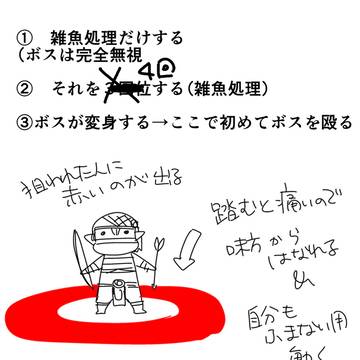 ① 雑魚処理だけする
(ボスは完全無視
4回
② それを する(雑魚処理)
③ボスが変身する→ここで初めてボスを殴る
狙われた人に
赤いのが出る
踏むと痛いので
味方から
はなれる
&
自分も
ふまない用
動く